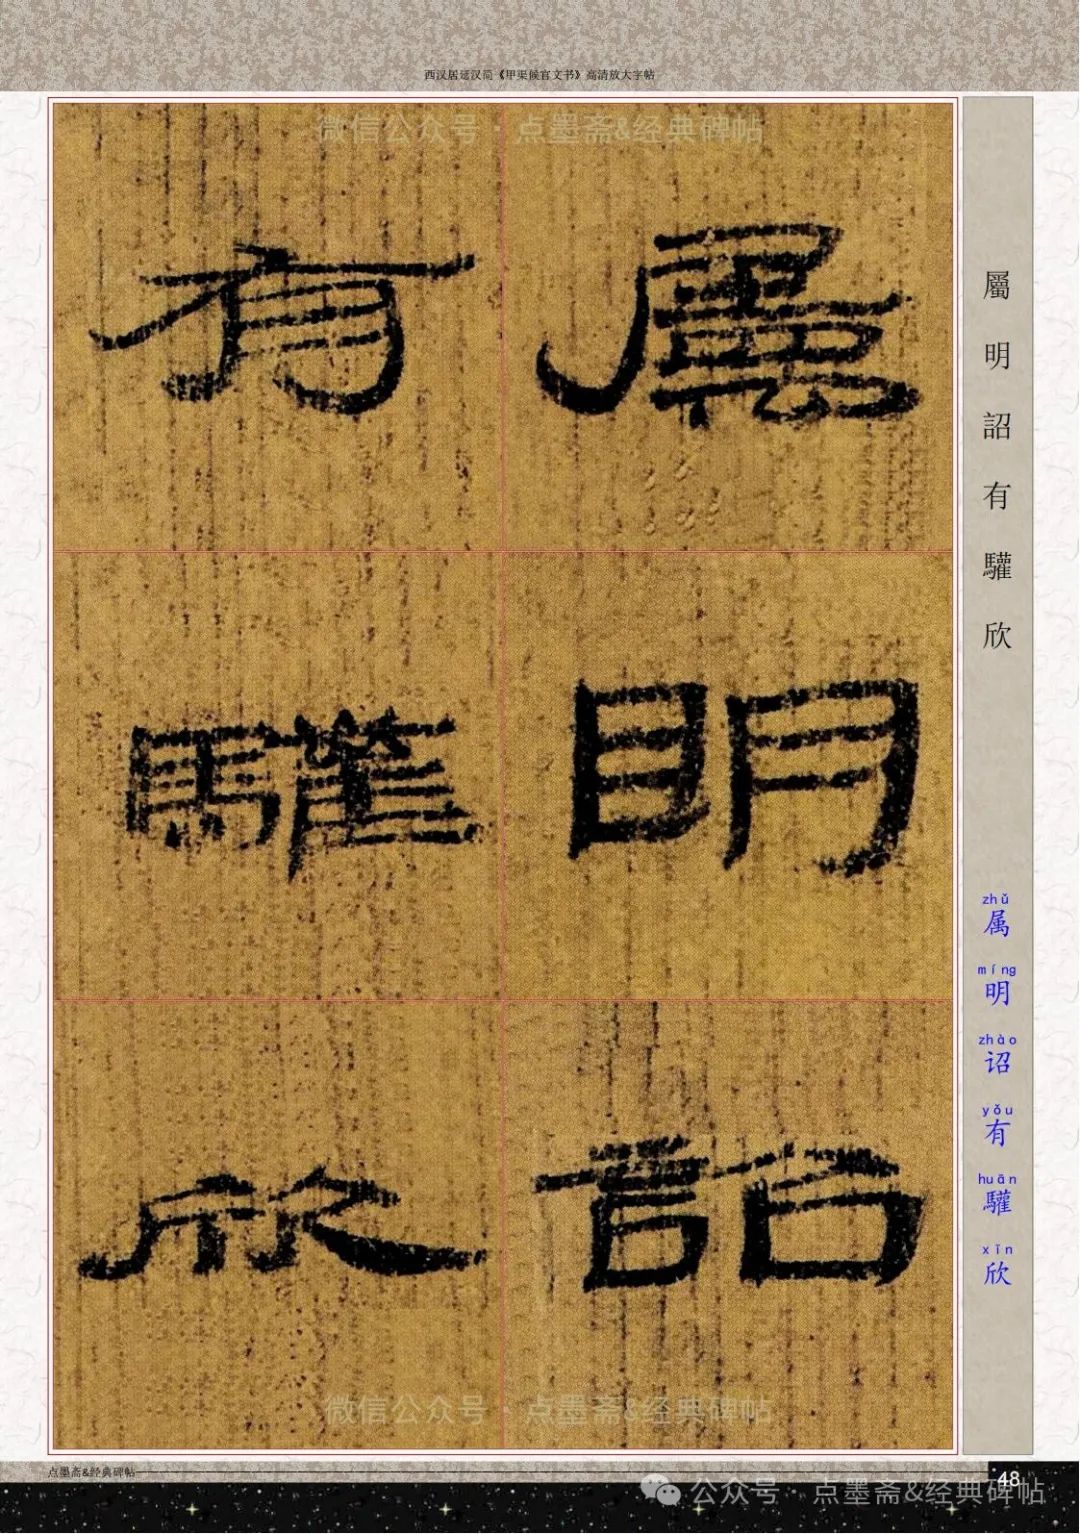 西汉居延汉简《甲渠候官文书》高清放大字帖
微信公众号·点墨斋&经典碑帖
屬明詔
有驩欣
屬明詔有驩欣
zhǔ
属
míng
明
zhào
诏
yǒu
有
huān
驩
xīn
欣
微信公众号·点墨斋&经典碑帖
点墨斋&经典碑帖
48
公众号·点墨斋&经典碑帖